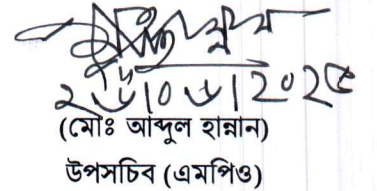 ২৬|০৬|২০২৫
(মোঃ আব্দুল হান্নান)
উপসচিব (এমপিও)